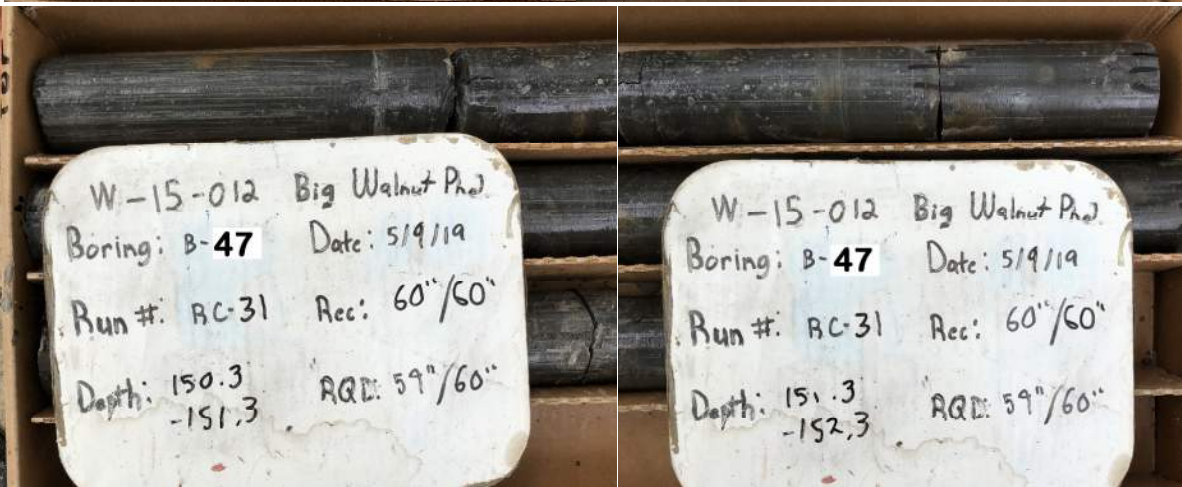 W-15-012 Big Walnut Ph2
Boring: B-47 Date: 5/9/19
Run #: RC-31 Rec: 60"/60"
Depth: 150.3 RQD: 59"/60"
-151.3
W-15-012 Big Walnut Ph2
Boring: B-47 Date: 5/9/19
Run #: RC-31 Rec: 60"/60"
Depth: 151.3 RQD: 59"/60"
-152.3